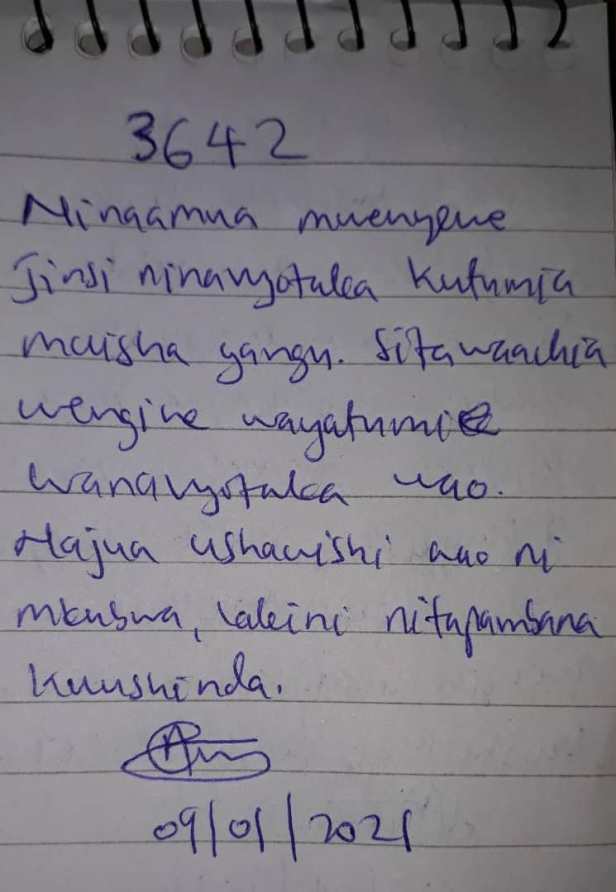 3642
Ninaamua mwenyewe
Jinsi ninavyotaka kutumia
maisha yangu. Sitawaachia
wengine wayatumie
wanavyotaka wao.
Najua ushawishi wao ni
mkubwa, lakini nitapambana
kuushinda.
09/01/2021